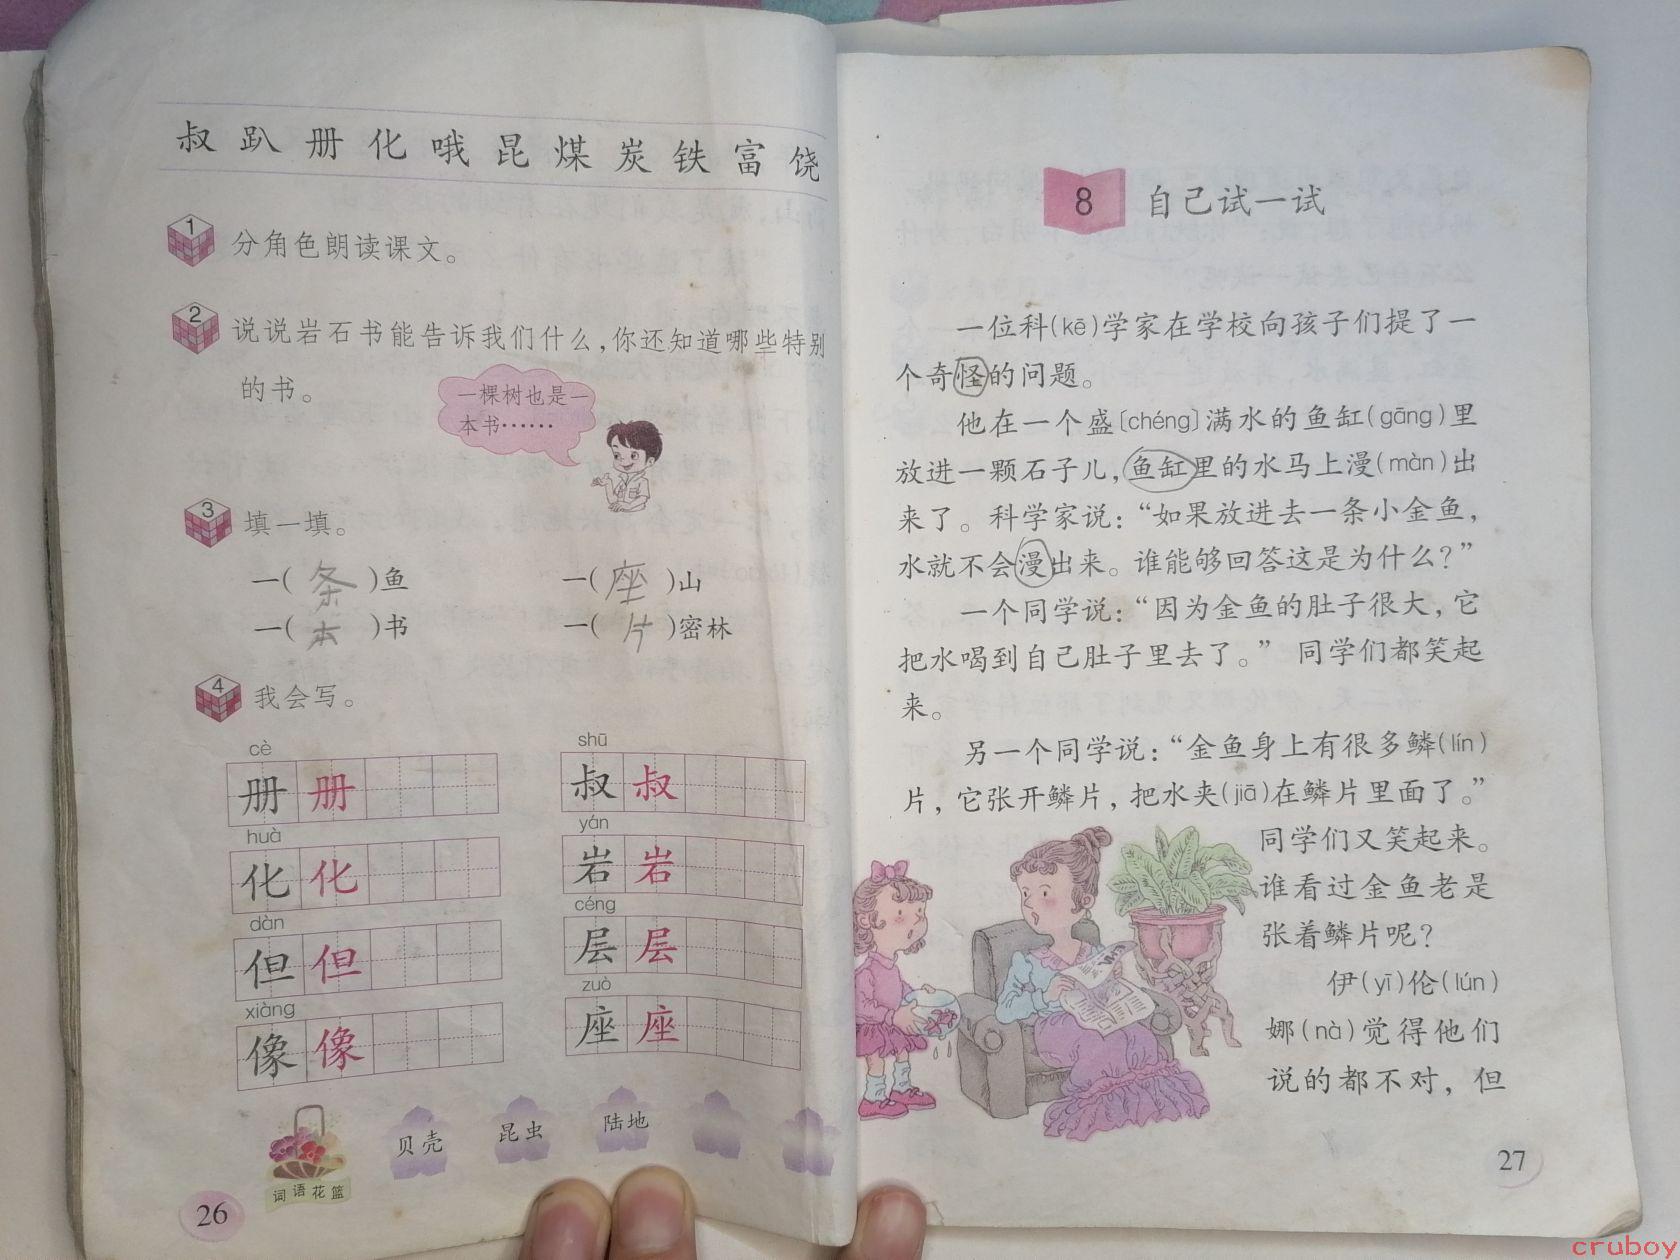 叔 趴 册 化 哦 昆 煤 炭 铁 富 饶
1 分角色朗读课文。
2 说说岩石书能告诉我们什么,你还知道哪些特别
的书。
一棵树也是一
本书……
3 填一填。
一(条)鱼 一(座)山
一(本)书 一(片)密林
4 我会写。
cè shū
册 册 叔 叔
huà yán
化 化 岩 岩
dàn céng
但 但 层 层
xiàng zuò
像 像 座 座
贝壳 昆虫 陆地
词语花篮
26
8 自己试一试
一位科(kē)学家在学校向孩子们提了一
个奇怪的问题。
他在一个盛〔chéng〕满水的鱼缸(gāng)里
放进一颗石子儿,鱼缸里的水马上漫(màn)出
来了。科学家说:“如果放进去一条小金鱼,
水就不会漫出来。谁能够回答这是为什么?”
一个同学说:“因为金鱼的肚子很大,它
把水喝到自己肚子里去了。” 同学们都笑起
来。
另一个同学说:“金鱼身上有很多鳞(lín)
片,它张开鳞片,把水夹(jiā)在鳞片里面了。”
同学们又笑起来。
谁看过金鱼老是
张着鳞片呢?
伊(yī)伦(lún)
娜(nà)觉得他们
说的都不对,但
27
cruboy